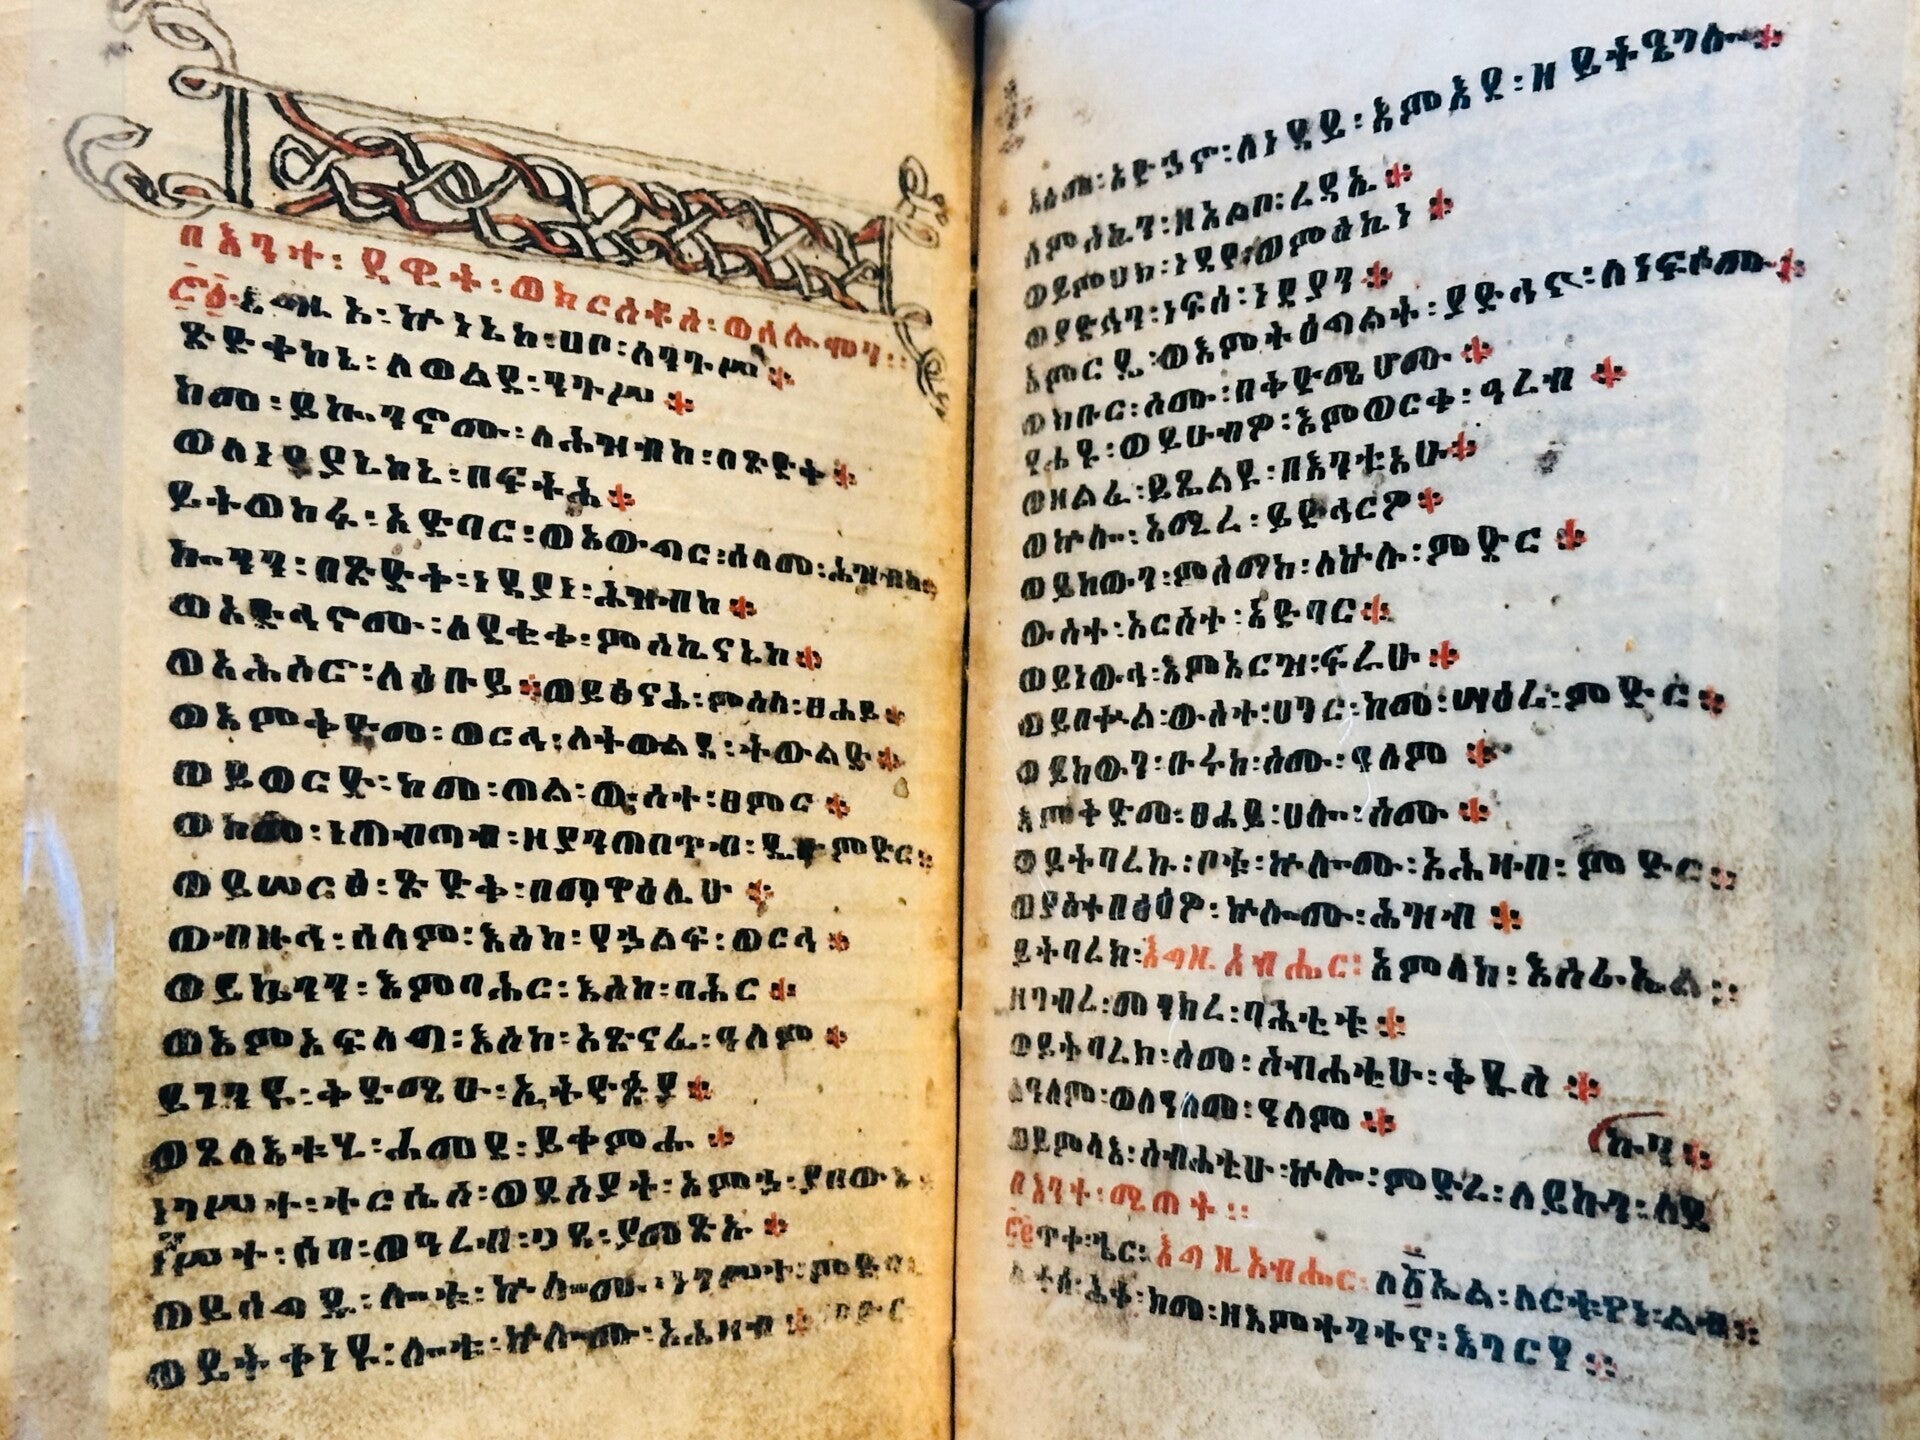 በእንተ፡ ዳዊት፡ ወክርስቶስ፡ ወሰሎሞን፡፡
እግዚኦ፡ ኵነኔከ፡ ሀቦ፡ ለንጉሥ፨
ጽድቀከኒ፡ ለወልደ፡ ንጉሥ፨
ከመ፡ ይኰንኖሙ፡ ለሕዝብከ፡ በጽድቅ፨
ወለነዳያኒከኒ፡ በፍትሕ፨
ይትወከፉ፡ አድባር፡ ወአውግር፡ ሰላመ፡ ሕዝብከ፨
ኰንን፡ በጽድቅ፡ ነዳያነ፡ ሕዝብከ፨
ወአድኅኖሙ፡ ለደቂቀ፡ ምስኪናኒከ፨
ወአሕስሮ፡ ለዕቡይ፨ ወይፀንሕ፡ ምስለ፡ ፀሐይ፨
ወእምቅድመ፡ ወርኅ፡ ለትውልደ፡ ትውልድ፨
ወይወርድ፡ ከመ፡ ጠል፡ ውስተ፡ ፀምር፨
ወከመ፡ ነጠብጣብ፡ ዘያንጠበጥብ፡ ዲበ፡ ምድር፨
ወይሠርፅ፡ ጽድቅ፡ በመዋዕሊሁ፨
ወብዙኅ፡ ሰላም፡ እስከ፡ ያኀልፍ፡ ወርኅ፨
ወይኴንን፡ እምባሕር፡ እስከ፡ ባሕር፨
ወእምአፍላግ፡ እስከ፡ አጽናፈ፡ ዓለም፨
ይገንዩ፡ ቅድሜሁ፡ ኢትዮጵያ፨
ወጸላእቱሂ፡ ሐመደ፡ ይቀምሑ፨
ነገሥተ፡ ተርሴስ፡ ወደሰያት፡ አምኃ፡ ያበውኡ
ነገሥተ፡ ሳባ፡ ወዓረብ፡ ጋዳ፡ ያመጽኡ፨
ወይሰግዱ፡ ሎቱ፡ ኵሎሙ፡ ነገሥተ፡ ምድር
ወይትቀነዩ፡ ሎቱ፡ ኵሎሙ፡ አሕዛብ፨
እስመ፡ አድኀኖ፡ ለነዳይ፡ እምእደ፡ ዘይትዔገሎ፨
ለምስኪን፡ ዘአልቦ፡ ረዳኢ፨
ወይምህክ፡ ነዳየ፡ ወምስኪነ፨
ወያድኅን፡ ነፍሰ፡ ነዳያን፨
እምርዴ፡ ወእምትዕግልት፡ ያድኅና፡ ለነፍሶሙ፨
ወክቡር፡ ስሙ፡ በቅድሜሆሙ፨
የሐዩ፡ ወይሁብዎ፡ እምወርቀ፡ ዓረብ፨
ወዘልፈ፡ ይጼልዩ፡ በእንቲአሁ፨
ወኵሎ፡ አሚረ፡ ይድኅርዎ፨
ወይከውን፡ ምስማክ፡ ለኵሉ፡ ምድር፨
ውስተ፡ አርእስተ፡ አድባር፨
ወይነውኅ፡ እምአርዝ፡ ፍሬሁ፨
ወይበቍል፡ ውስተ፡ ሀገር፡ ከመ፡ ሣዕረ፡ ምድር፨
ወይከውን፡ ቡሩከ፡ ስሙ፡ ለዓለም፨
እምቅድመ፡ ፀሐይ፡ ሀሎ፡ ስሙ፨
ወይትባረኩ፡ ቦቱ፡ ኵሎሙ፡ አሕዛበ፡ ምድር፨
ወያስተበፅዕዎ፡ ኵሎሙ፡ ሕዝብ፨
ይትባረክ፡ እግዚአብሔር፡ አምላከ፡ እስራኤል፡፡
ዘገብረ፡ መንክረ፡ ባሕቲቱ፨
ወይትባረክ፡ ስመ፡ ስብሐቲሁ፡ ቅዱስ፨
ለዓለም፡ ወለዓለመ፡ ዓለም፨
ወይምላእ፡ ስብሐቲሁ፡ ኵሎ፡ ምድረ፡ ለይኩን፡ ለይ
ኩን፨
በእንተ፡ ሚጠት፡፡
ጥቀ፡ ኄር፡ እግዚአብሔር፡
ከመ፡ ዘእምተንተና፡ እገርየ፨